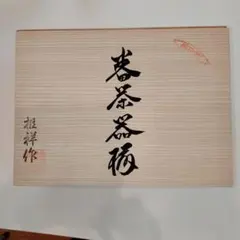 番茶器揃
祖祥作